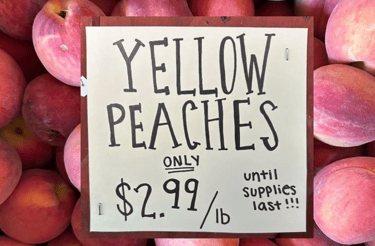 YELLOW
PEACHES
ONLY
$2.99/lb
until
supplies
last!!!